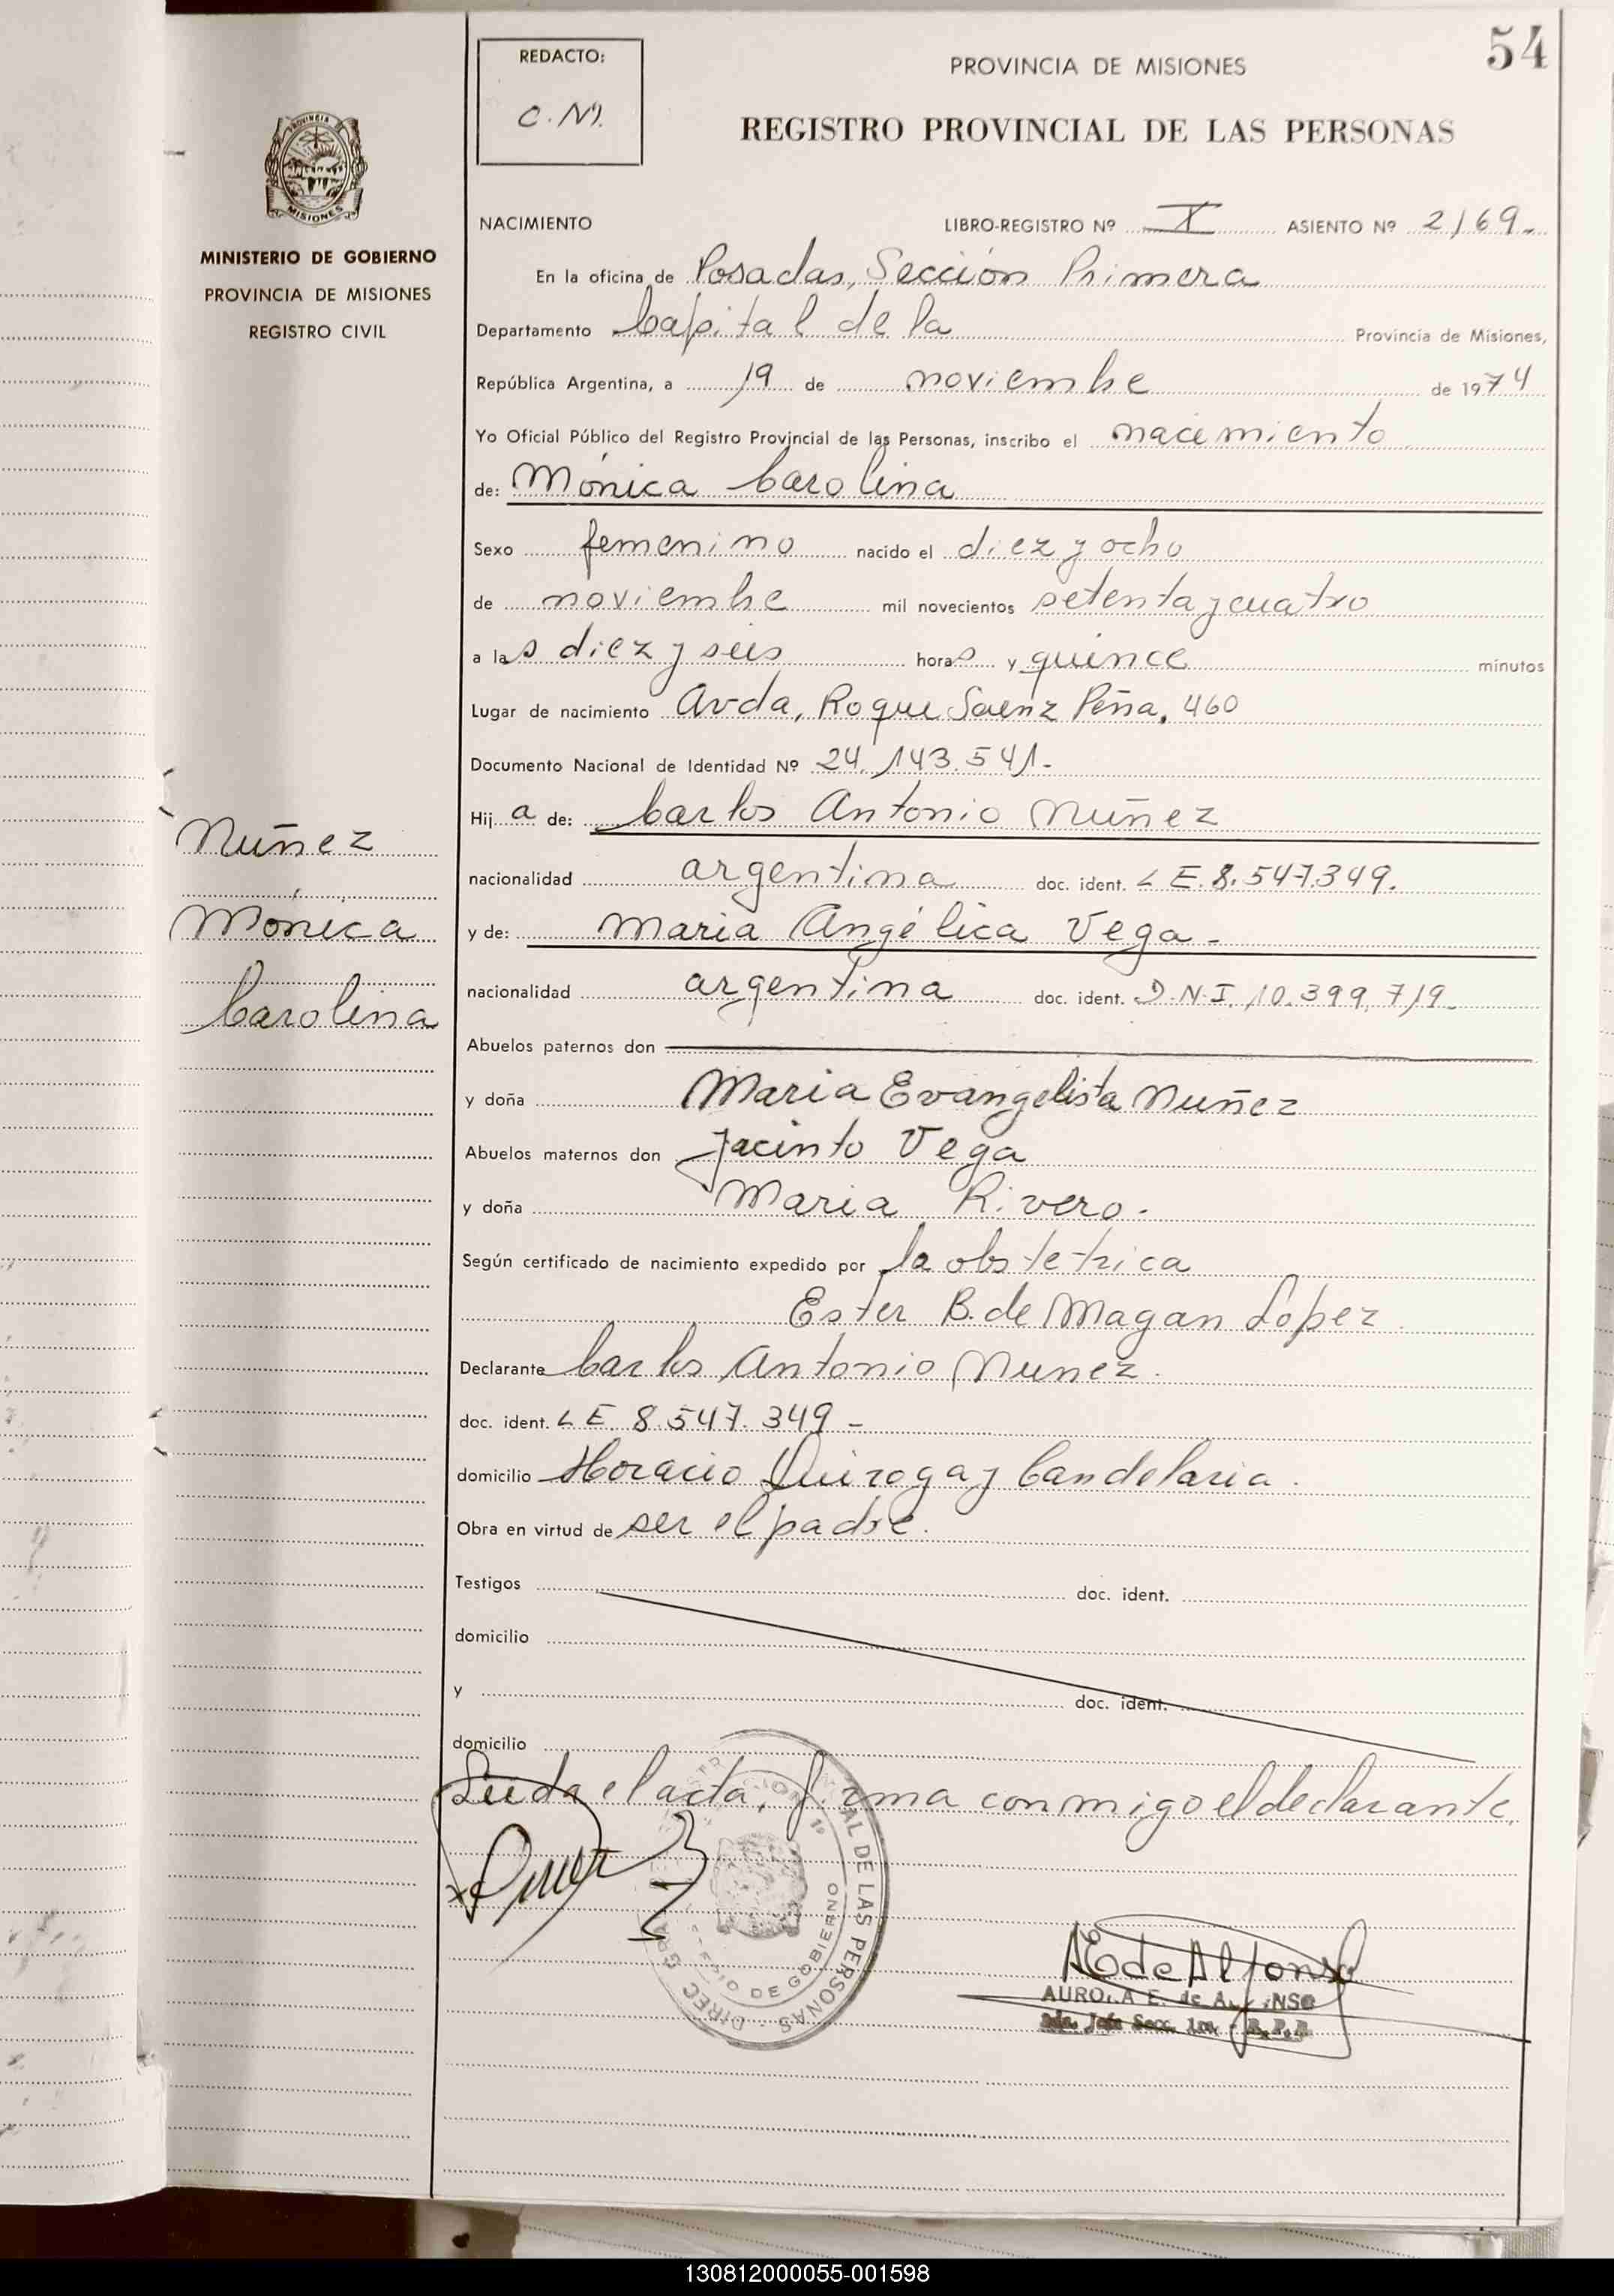 54
REDACTO:
C. N.
PROVINCIA DE MISIONES
REGISTRO PROVINCIAL DE LAS PERSONAS
PROVINCIA DE
MISIONES
MINISTERIO DE GOBIERNO
PROVINCIA DE MISIONES
REGISTRO CIVIL
NACIMIENTO LIBRO-REGISTRO Nº X ASIENTO Nº 2169-
En la oficina de Posadas, Sección Primera
Departamento Capital de la Provincia de Misiones,
República Argentina, a 19 de noviembre de 1974
Yo Oficial Público del Registro Provincial de las Personas, inscribo el nacimiento
de: Mónica Carolina
Sexo femenino nacido el diez y ocho
de noviembre mil novecientos setenta y cuatro
a las diez y seis horas y quince minutos
Lugar de nacimiento Avda, Roque Saenz Peña, 460
Documento Nacional de Identidad Nº 24.143.541-
Hija de: Carlos Antonio Nuñez
nacionalidad argentina doc. ident. L E. 8.547.349.
Nuñez
Mónica
Carolina
y de: Maria Angélica Vega-
nacionalidad argentina doc. ident. D.N.I. 10.399.719-
Abuelos paternos don
y doña Maria Evangelista Nuñez
Abuelos maternos don Jacinto Vega
y doña Maria Rivero.
Según certificado de nacimiento expedido por la obstetrica
Ester B. de Magan Lopez.
Declarante Carlos Antonio Nunez.
doc. ident. L E. 8.547.349-
domicilio Horacio Quiroga y Candelaria.
Obra en virtud de ser el padre.
Testigos doc. ident.
domicilio
y doc. ident.
domicilio
Leida el acta, firma conmigo el declarante,
AL DE LAS PERSONAS - DIREC. GRAL
DE GOBIERNO
AEdeAlfonso
AURORA E. de ALFONSO
130812000055-001598